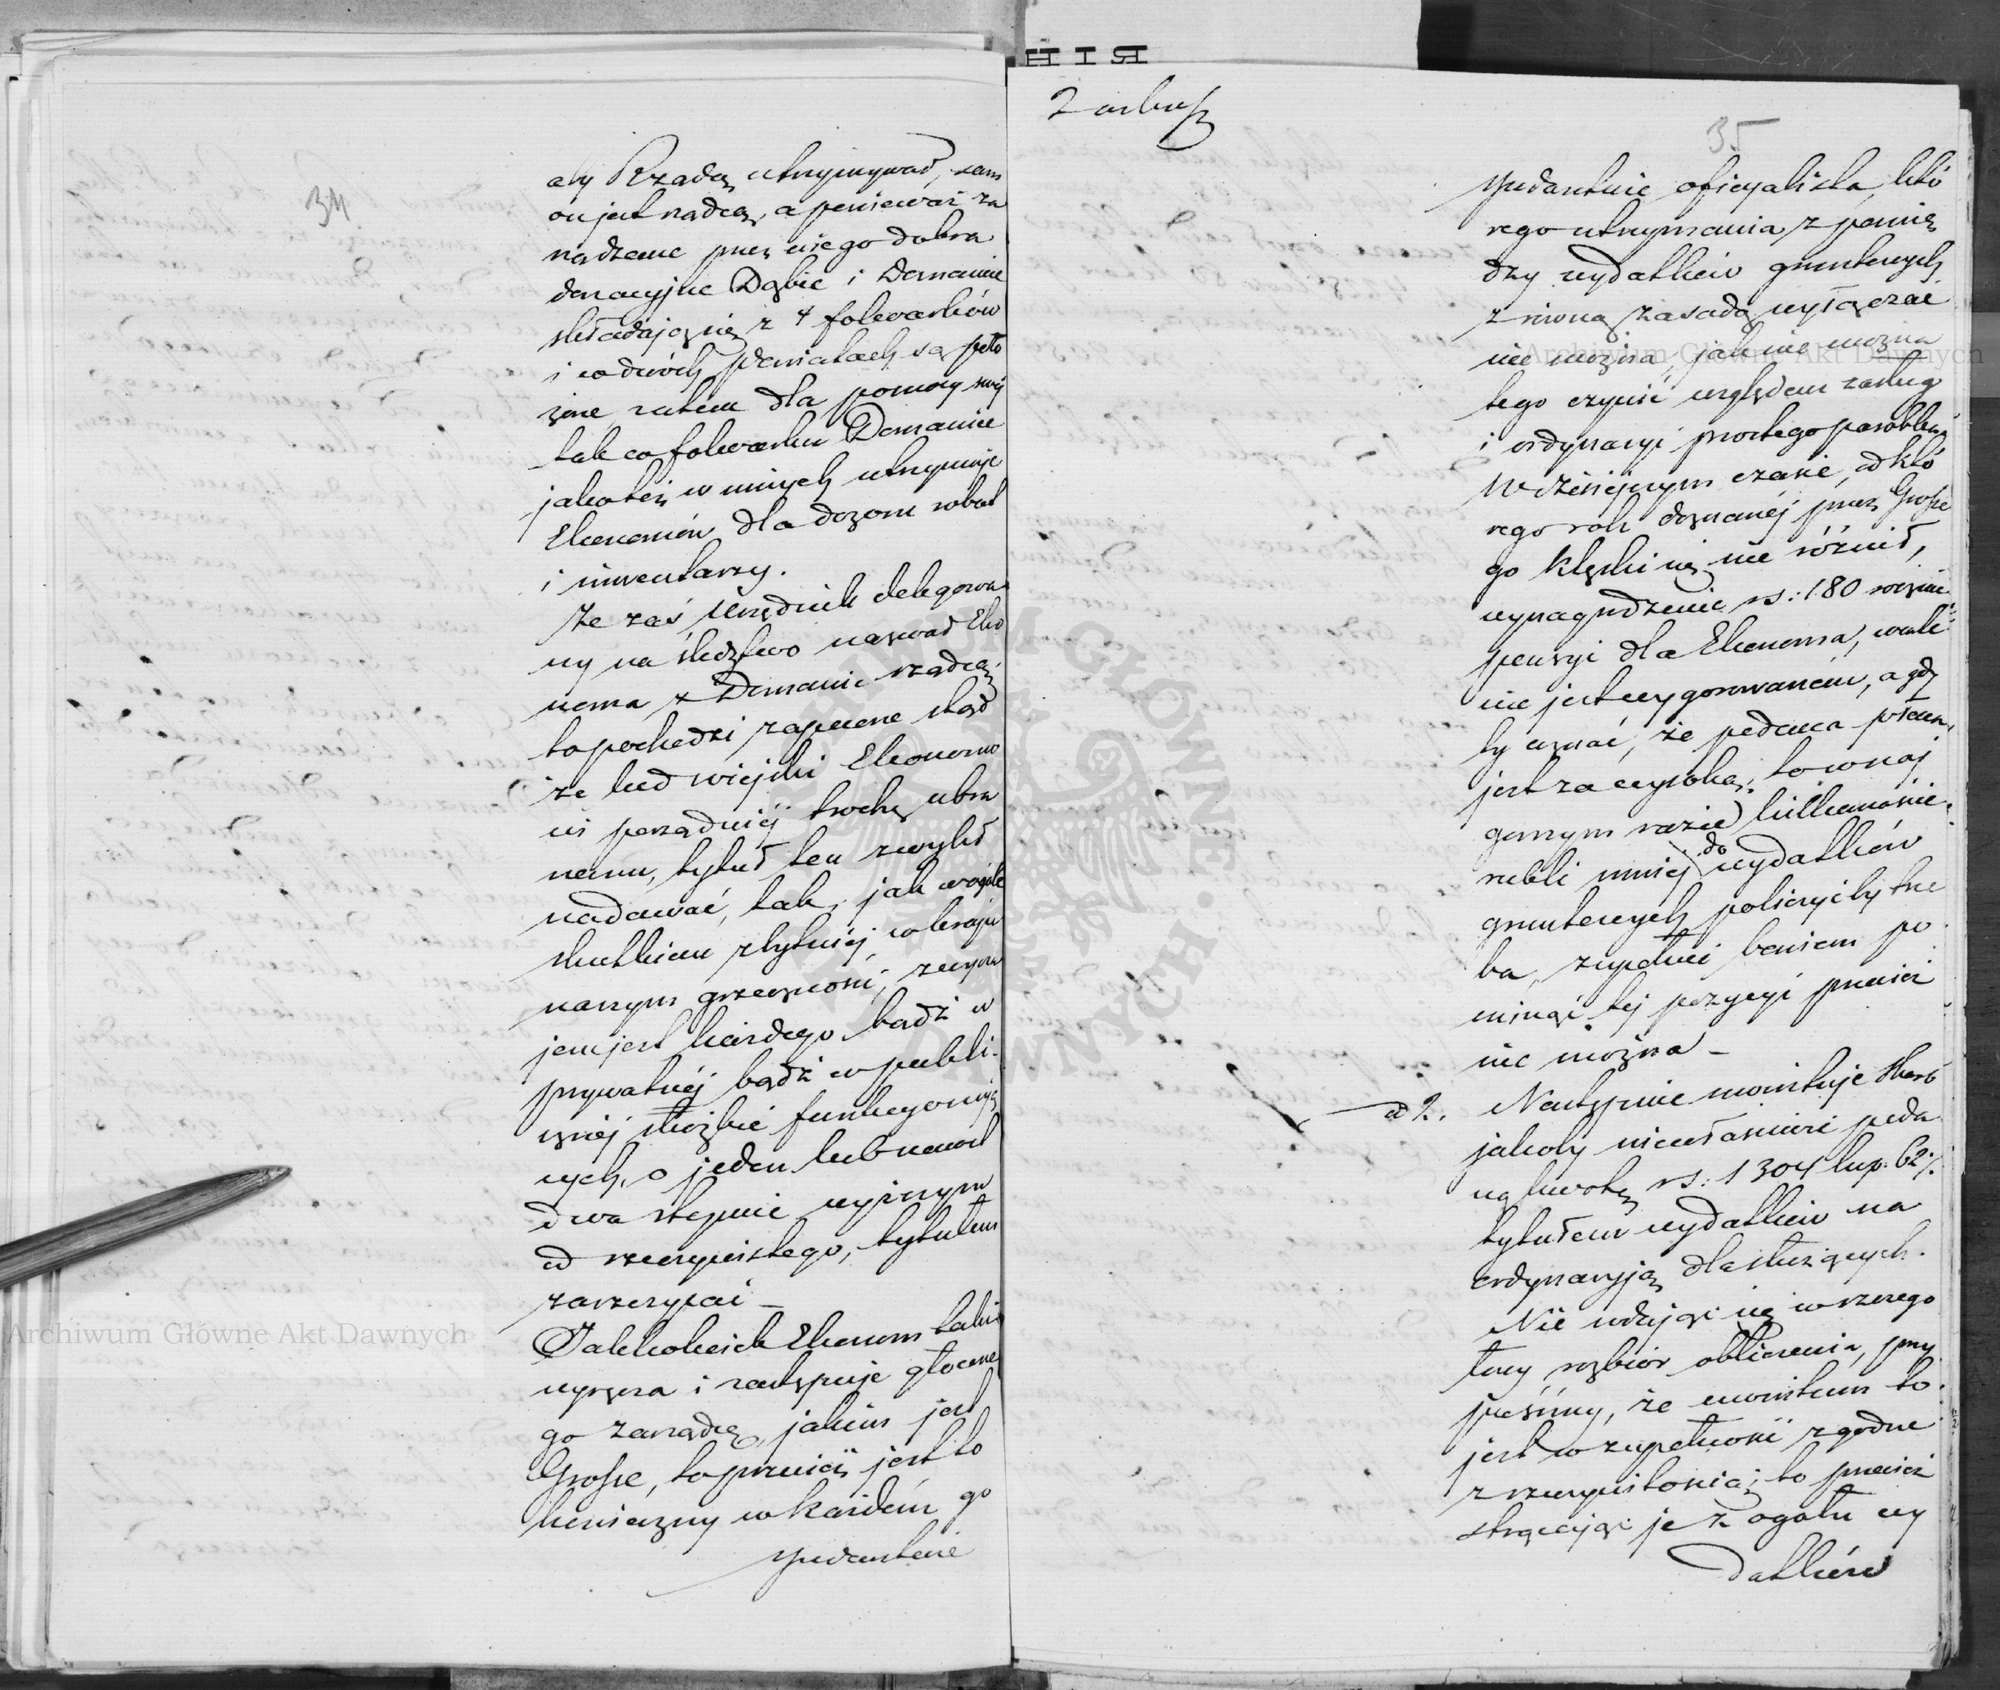 34
aby Rządzcę utrzymywać, sam
on jest rządcą, a ponieważ za
rządzane przez niego dobra
donacyjne Dąbie i Domanin
składają się z 4 folwarków
i w dwóch powiatach są poło
żone zatem dla pomocy swéj
tak w folwarku Domanice
jakoteż w innych utrzymuje
Ekonomów dla dozoru robót
i inwentarzy.
Że zaś Urzędnik delegowa
ny na śledztwo nazwał Eko
noma z Domanic rządcą,
to pochodzi zapewne stąd
że lud wiejski Ekonomo
wi porządniéj trochę ubra
nemu, tytuł ten zwykł
nadawać, tak, jak wogóle
skutkiem zbytniéj w kraju
naszym grzeczności, zwycza
jem jest każdego bądź w
prywatnéj bądź w publi
cznéj służbie funkcyonują
cych, o jeden lub nawet
dwa stopnie wyższym
od rzeczywistego, tytułem
zaszczycać —
Jakkolwiek Ekonom taki
wyręcza i zastępuje główne
go zarządcę, jakim jest
Grosse, to przecież jest to
konieczny w każdém go
spodarstwie
Zarbusz
35
spodarstwie oficyalista, któ
rego utrzymania z pomię
dzy wydatków gruntowych
z równą zasadą wyłączać
nie można, jak nie można
tego czynić względem zasług
i ordynaryi prostego parobka
W dzisiejszym czasie, od któ
rego rok doznanéj przez Grosse
go klęski się nie różnił,
wynagrodzenie rs: 180 rocznie
pensyi dla Ekonoma, wcale
nie jest wygórowaném, a gdy
by uznać, że podana
jest za wysoką, to w naj
gorszym razie kilkanaście
rubli mniéj do wydatków
gruntowych policzyćby trze
ba, zupełnie bowiem po
minąć téj pozycyi przecież
nie można —
ad 2. Następnie monituje Skarb
jakoby niewłaściwie poda
ną kwotę rs: 1304 kop: 62½
tytułem wydatków na
ordynaryją dla służących.
Nie wdając się w szczegó
łowy rozbiór obliczenia, przy
puśćmy, że monitum to
jest w zupełności zgodne
z rzeczywistością, to przecież
strącając je z ogółu wy
datków